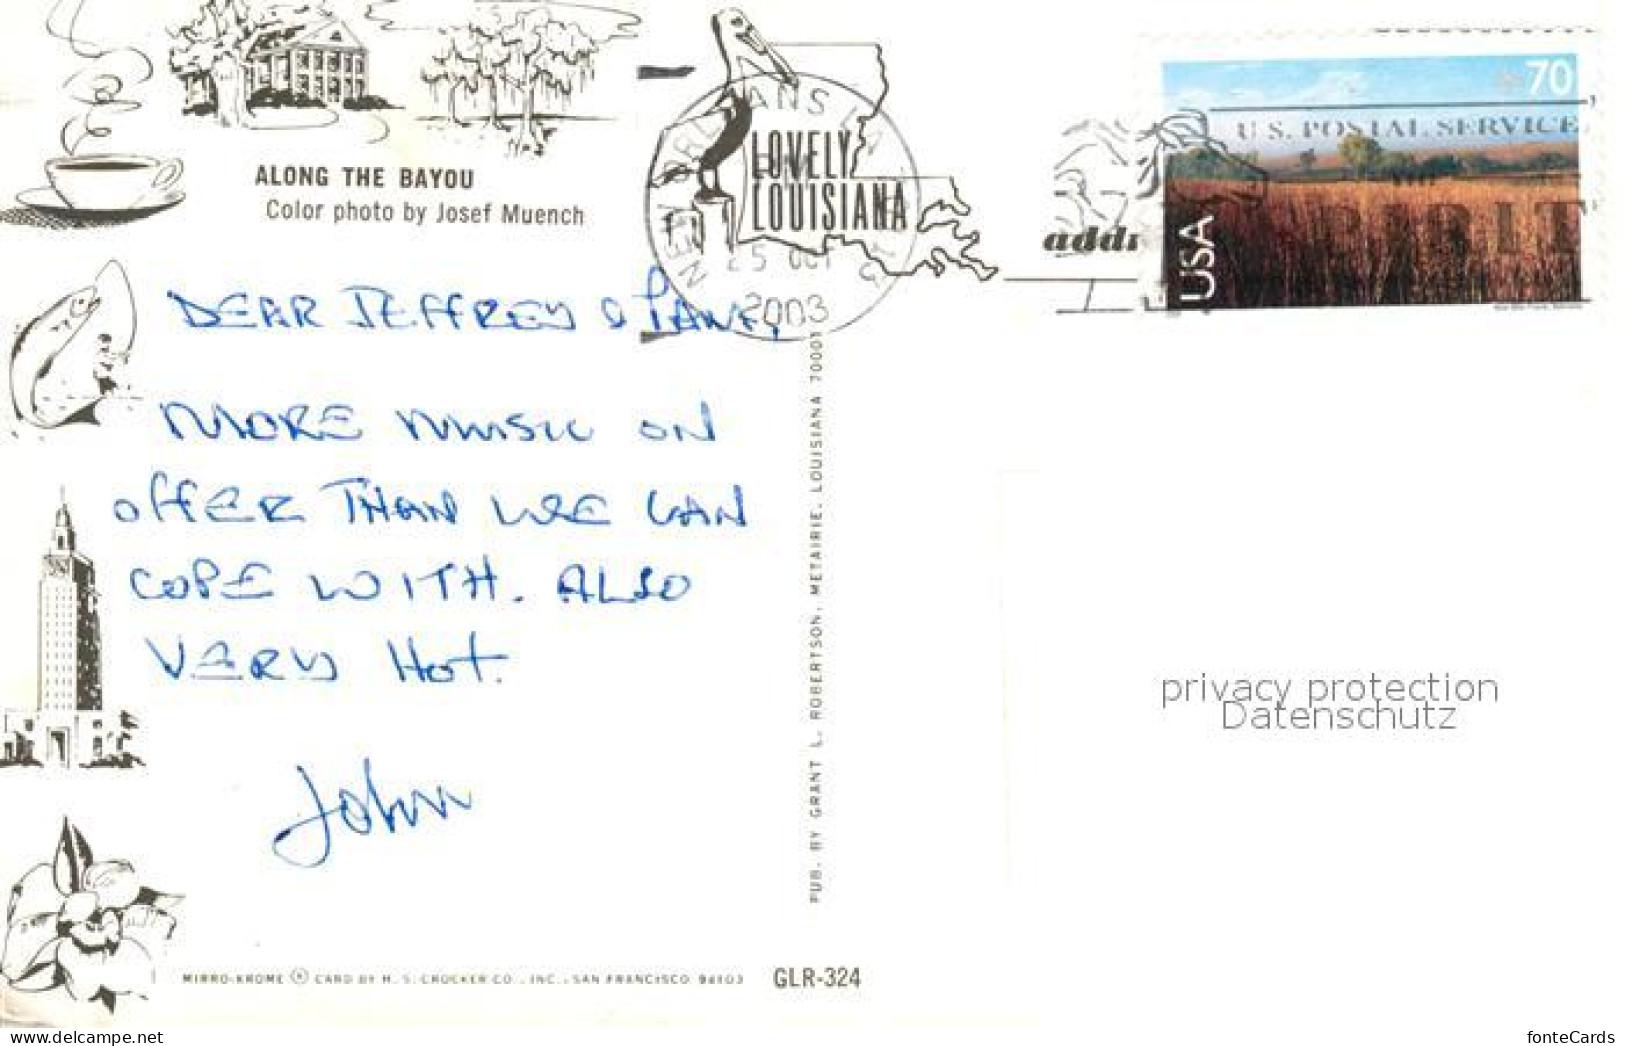 ALONG THE BAYOU
Color photo by Josef Muench
NEW ORLEANS LA
LOVELY
LOUISIANA
25 OCT
2003
70
U.S. POSTAL SERVICE
SPIRIT
USA
DEAR JEFFREY &
MORE MUSIC ON
OFFER THAN WE CAN
COPE WITH. ALSO
VERY HOT.
John
PUB. BY GRANT L. ROBERTSON, METAIRIE, LOUISIANA 70001
MIRRO-KROME ® CARD BY H. S. CROCKER CO., INC., SAN FRANCISCO 94103
GLR-324
privacy protection
Datenschutz
www.delcampe.net
fonteCards